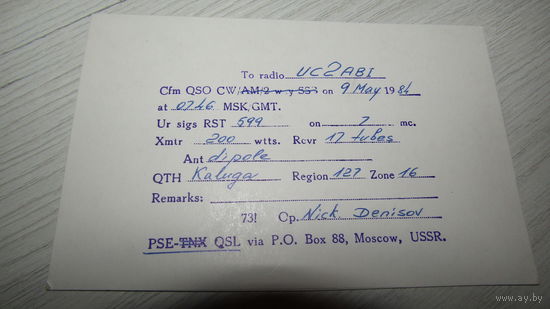 To radio UC2ABI
Cfm QSO CW/AM/2 w-y SSB on 9 May 1984
at 0746 MSK/GMT.
Ur sigs RST 599 on 7 mc.
Xmtr 200 wtts. Rcvr 17 tubes
Ant dipole
QTH Kaluga Region 127 Zone 16
Remarks:
73! Op. Nick Denisov
PSE-TNX QSL via P.O. Box 88, Moscow, USSR.
www.ay.by